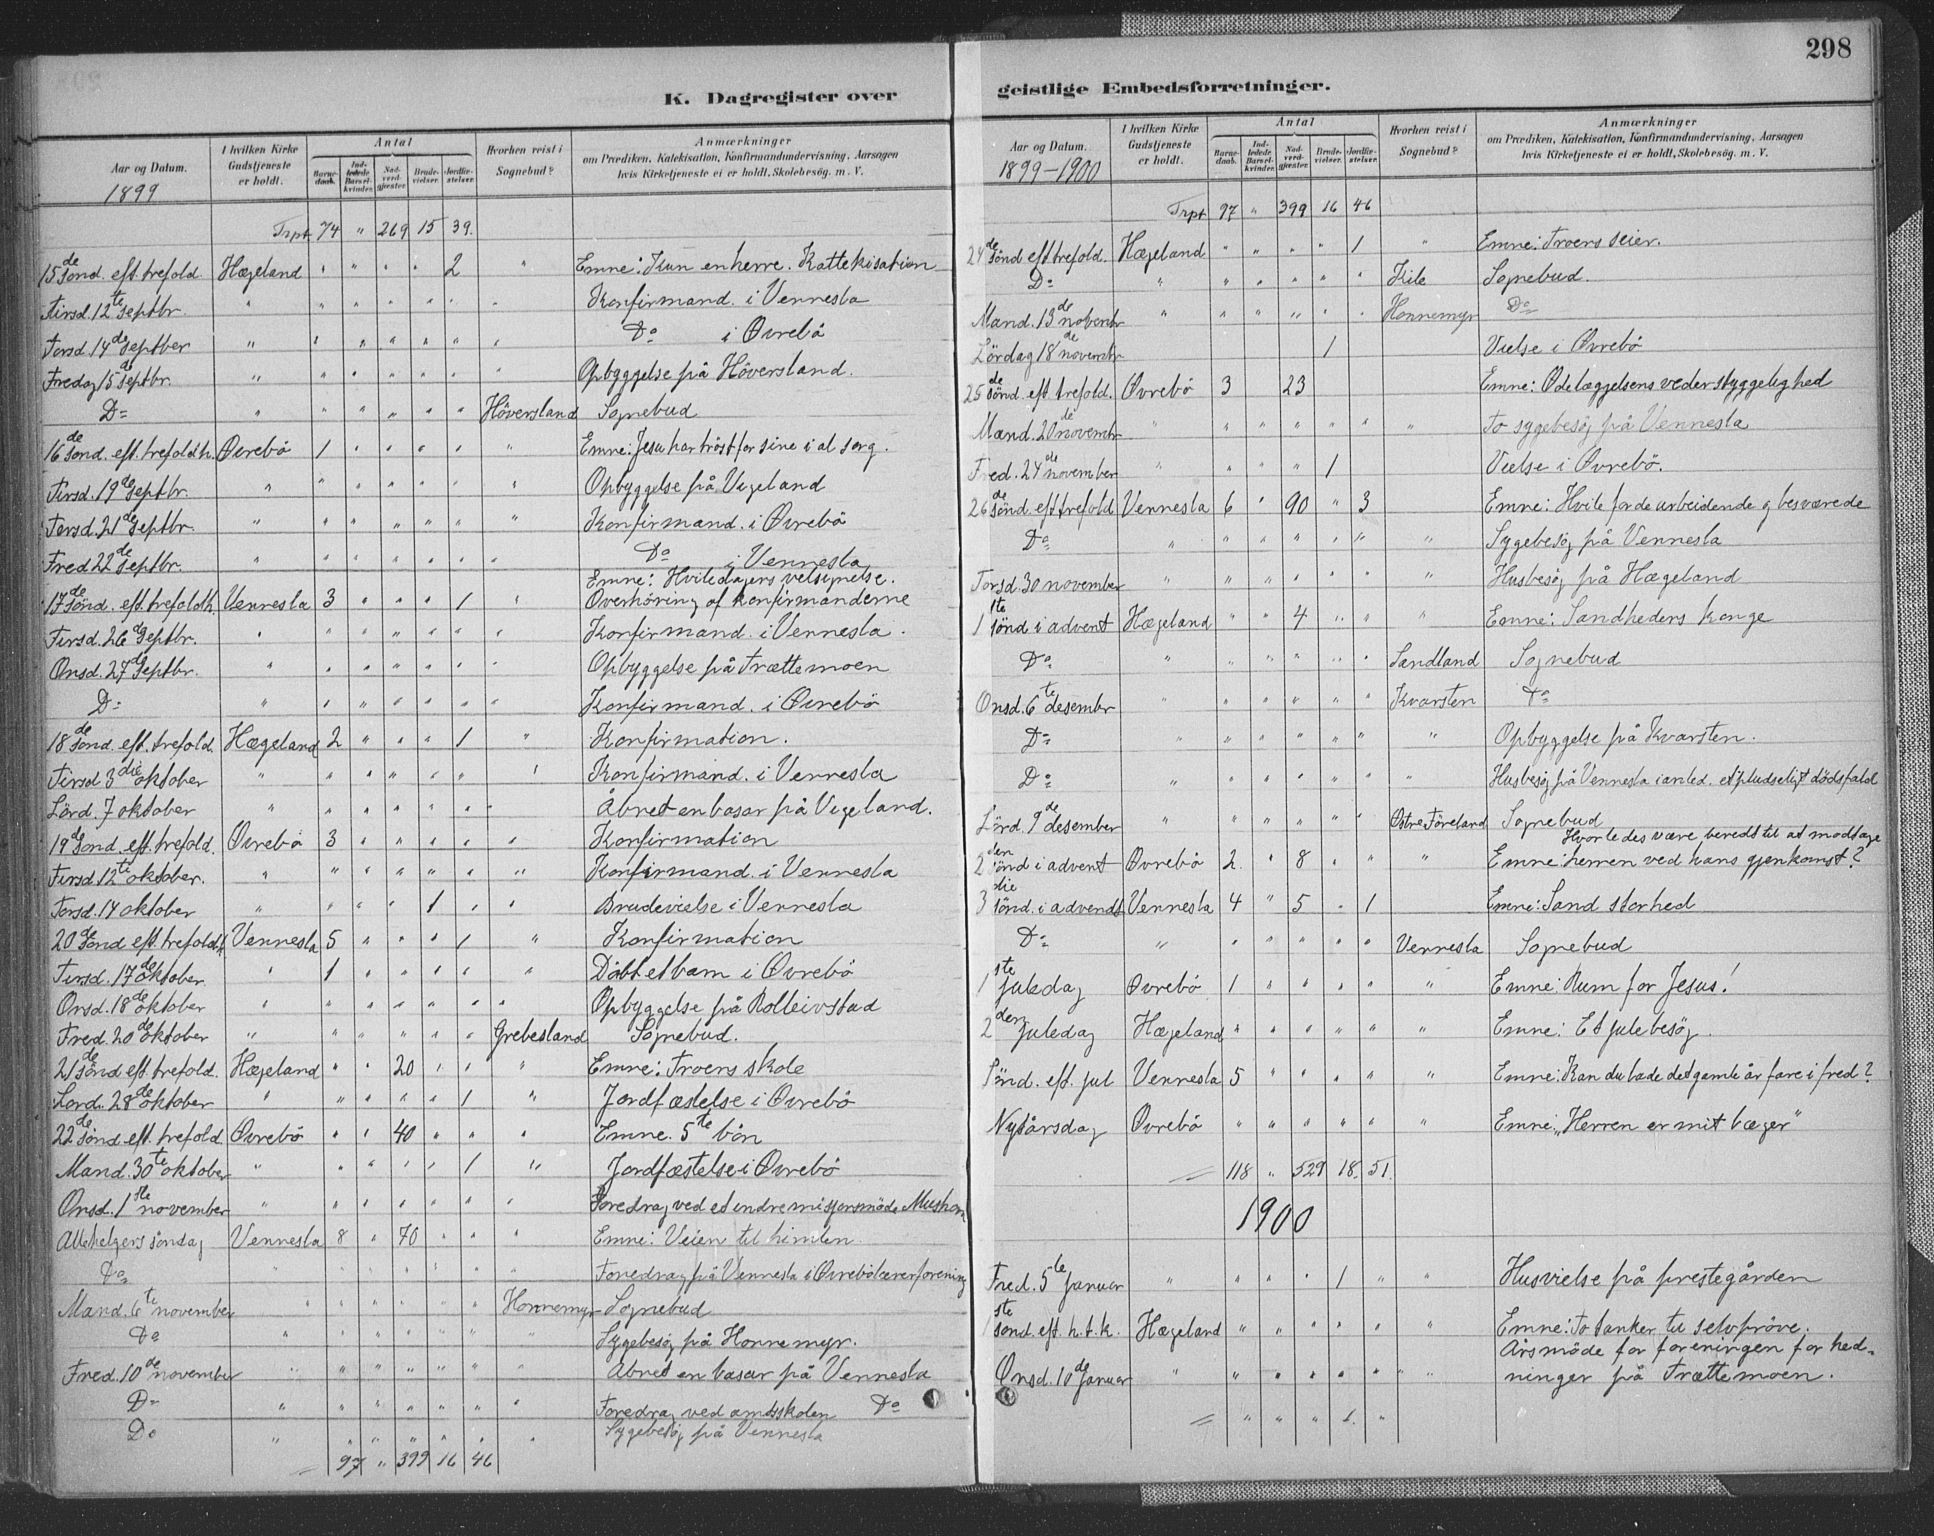 298
K. Dagregister over
Aar og Datum. I hvilken Kirke Gudstjeneste er holdt. Antal Barnedaab. Indledede Barselkvinder. Nadverdgjæster. Brudevielser. Jordfæstelser. Hvorhen reist i Sognebud? Anmærkninger om Prædiken, Katekisation, Konfirmandundervisning, Aarsagen hvis Kirketjeneste ei er holdt, Skolebesøg. m. V.
1899
Trpt 74 " 269 15 39.
15de sønd. eft. trefold. Hægeland " " " " 2 " Emne: Kun en herre. Kattekisation
Tirsd. 12te septbr. " " " " " " " Konfirmand. i Vennesla
Torsd. 14de septber " " " " " " " Do i Øvrebö
Fredag 15de septbr. " " " " " " " Opbyggelse på Höversland.
Do " " " " " " Höversland Sognebud
16de sønd. eft. trefoldh. Øvrebö 1 " " " " " Emne: Jesu har tröst for sine i al sorg.
Tirsd. 19de septbr. " " " " " " " Opbyggelse på Vigeland
Torsd. 21de septbr. " " " " " " " Konfirmand. i Øvrebö
Fred 22de septbr. " " " " " " " Do i Vennesla
Emne: Hviledagens velsignelse.
17de sönd. eft. trefoldh. Vennesla 3 " " " 1 " Overhöring af konfirmanderne
Tirsd. 26de septbr. " " " " " " " Konfirmand. i Vennesla.
Onsd. 27de septbr. " " " " " " " Opbyggelse på Trættemoen
Do " " " " " " " Konfirmand. i Øvrebö
18de sönd. eft. trefold. Hægeland 2 " " " 1 " Konfirmation.
Tirsd 3die oktober " " " " " " " Konfirmand. i Vennesla
Lörd. 7 oktober " " " " " " " Åbnet en basar på Vigeland.
19de sönd. eft. trefold. Øvrebö 3 " " " " " Konfirmation
Tirsd 12te oktober. " " " " " " " Konfirmand. i Vennesla
Torsd. 14 oktober " " " " 1 " " Brudevielse i Vennesla
20de sönd eft. trefoldh. Vennesla 5 " " " 1 " Konfirmation
Tirsd. 17de oktober. " 1 " " " " " Döbt et barn i Øvrebö
Onsd. 18de oktober " " " " " " " Opbyggelse på Rolleivstad
Fred. 20de oktober " " " " " " Grebesland Sognebud.
21de sönd eft trefold. Hægeland " " 20 " " " Emne: Troens skole
Lörd. 28de oktober " " " " " 1 " Jordfæstelse i Øvrebö
22de sönd eft. trefold. Øvrebö " " 40 " " " Emne. 5te bön
Mand. 30te oktober " " " " " 1 " Jordfæstelse i Øvrebö
Onsd. 1ste november " " " " " " " Foredrag ved et indremisjonsmöde
Allehelgens söndag Vennesla 8 " 70 " " " Emne: Veien til himlen
Do " " " " " " " Foredrag på Vennesla i Øvrebö lærerforening
Mand. 6te november " " " " " " Honnemyr Sognebud
Do " " " " " " " Sygebesög på Honnemyr.
Fred. 10de november " " " " " " " Åbnet en basar på Vennesla
Do " " " " " " " Foredrag ved amtsskolen Do
Do " " " " " " " Sygebesög på Vennesla
= 97 " 399 16 46
geistlige Embedsforretninger.
Aar og Datum. I hvilken Kirke Gudstjeneste er holdt. Antal Barnedaab. Indledede Barselkvinder. Nadverdgjæster. Brudevielser. Jordfæstelser. Hvorhen reist i Sognebud? Anmærkninger om Prædiken, Katekisation, Konfirmandundervisning, Aarsagen hvis Kirketjeneste ei er holdt, Skolebesøg. m. V.
1899-1900
Trpt 97 " 399 16 46
24de sönd eft trefold. Hægeland " " " " 1 " Emne: Troens seier.
Do " " " " " " Kile Sognebud.
Mand. 13de novembr " " " " " " Honnemyr Do
Lördag 18de novembr 1 Vielse i Øvrebö
25de sönd. eft. trefold. Øvrebö 3 23 Emne: Ödelæggelsens vederstyggelighed
Mand. 20de novembr " " " " " " " To sygebesög på Vennesla
Fred. 24de november " " " " 1 Vielse i Øvrebö.
26de sönd. eft trefold Vennesla 6 " 90 " 3 Emne: Hvile for de arbeidende og besværede
Do " " " " " " " Sygebesög på Vennesla
Torsd. 30 november " " " " " " " Husbesög på Hægeland
1ste sönd i advent Hægeland " " 4 " " " Emne: Sandhedens konge
Do " " " " " " Sandland Sognebud
Onsd. 6te desembr " " " " " " Kvarsten Do
Do " " " " " " " Opbyggelse på Kvarsten.
Do " " " " " " " Husbesög på Vennesla i anled. et pludseligt dödsfald
Lörd. 9de desember " " " " " " Östre Föreland Sognebud
Hvorledes være beredt til at modtage
2den sönd i advent Øvrebö 2. " 8 " " " Emne: herren ved hans gjenkomst?
3die sönd. i advendt Vennesla 4 " 5 " 1 Emne: Sand storhed
Do " " " " " " Vennesla Sognebud
1ste juledag Øvrebö 1 " " " " " Emne: Rum for Jesus!
2den juledag Hægeland " " " " " " Emne: Et julebesög.
Sönd. eft. jul Vennesla 5 " " " " " Emne: Kan du lade det gamle år fare i fred?
Nytårsdag Øvrebö " " " " " " Emne: „Herren er mit bæger"
= 118 " 529 18. 51.
1900
Fred. 5te januar " " " " 1 " " Husvielse på prestegården
1ste sönd. eft. h. t. k. Hægeland " " " " " " Emne: To tanker til selvpröve.
Årsmöde for foreningen for hed-
Onsd. 10de januar " " " " " " " ninger på Trættemoen.
= " " " 1. "